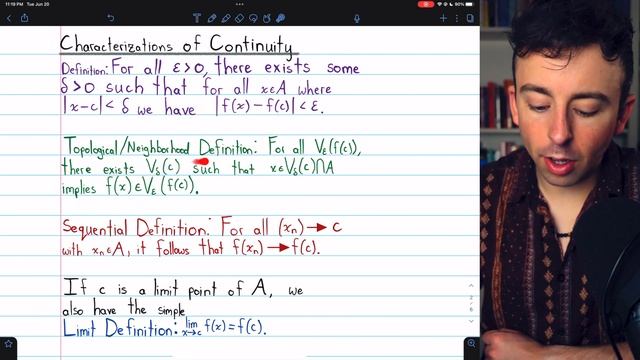 11:19 PM Tue Jun 20
90%
Characterizations of Continuity
Definition: For all ε>0, there exists some
δ>0 such that for all x∈A where
|x-c|<δ we have |f(x)-f(c)|<ε.
Topological/Neighborhood Definition: For all Vε(f(c)),
there exists Vδ(c) such that x∈Vδ(c)∩A
implies f(x)∈Vε(f(c)).
Sequential Definition: For all (xₙ)→c
with xₙ∈A, it follows that f(xₙ)→f(c).
If c is a limit point of A, we
also have the simple
Limit Definition: lim x→c f(x)=f(c).
2
/
6